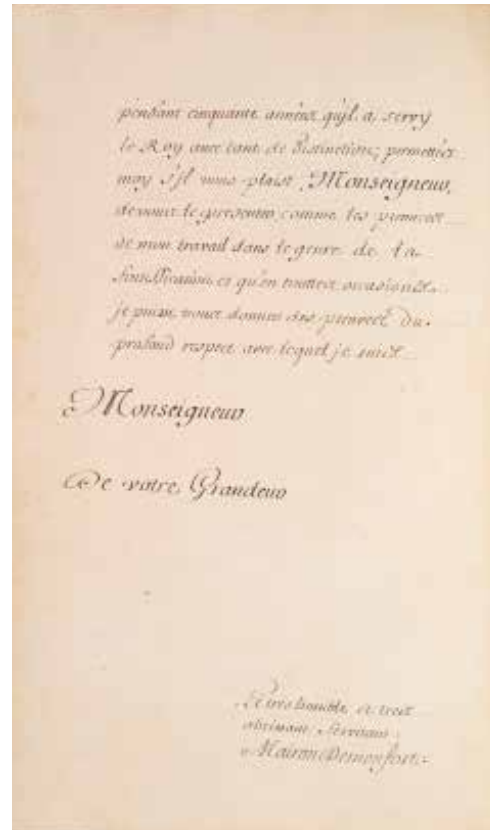 pendant cinquante années qu'jl a servy
le Roy avec tant de Distinction; permettés
moy s'jl vous plaist, Monseigneur,
de vous le presenter comme les premices
de mon travail dans le genre de la
fortification et qu'en touttes occasions
je puisse vous donner des preuves du
profond respect avec lequel je suis
Monseigneur
De votre Grandeur
Le tres humble et tres
obeissant Serviteur